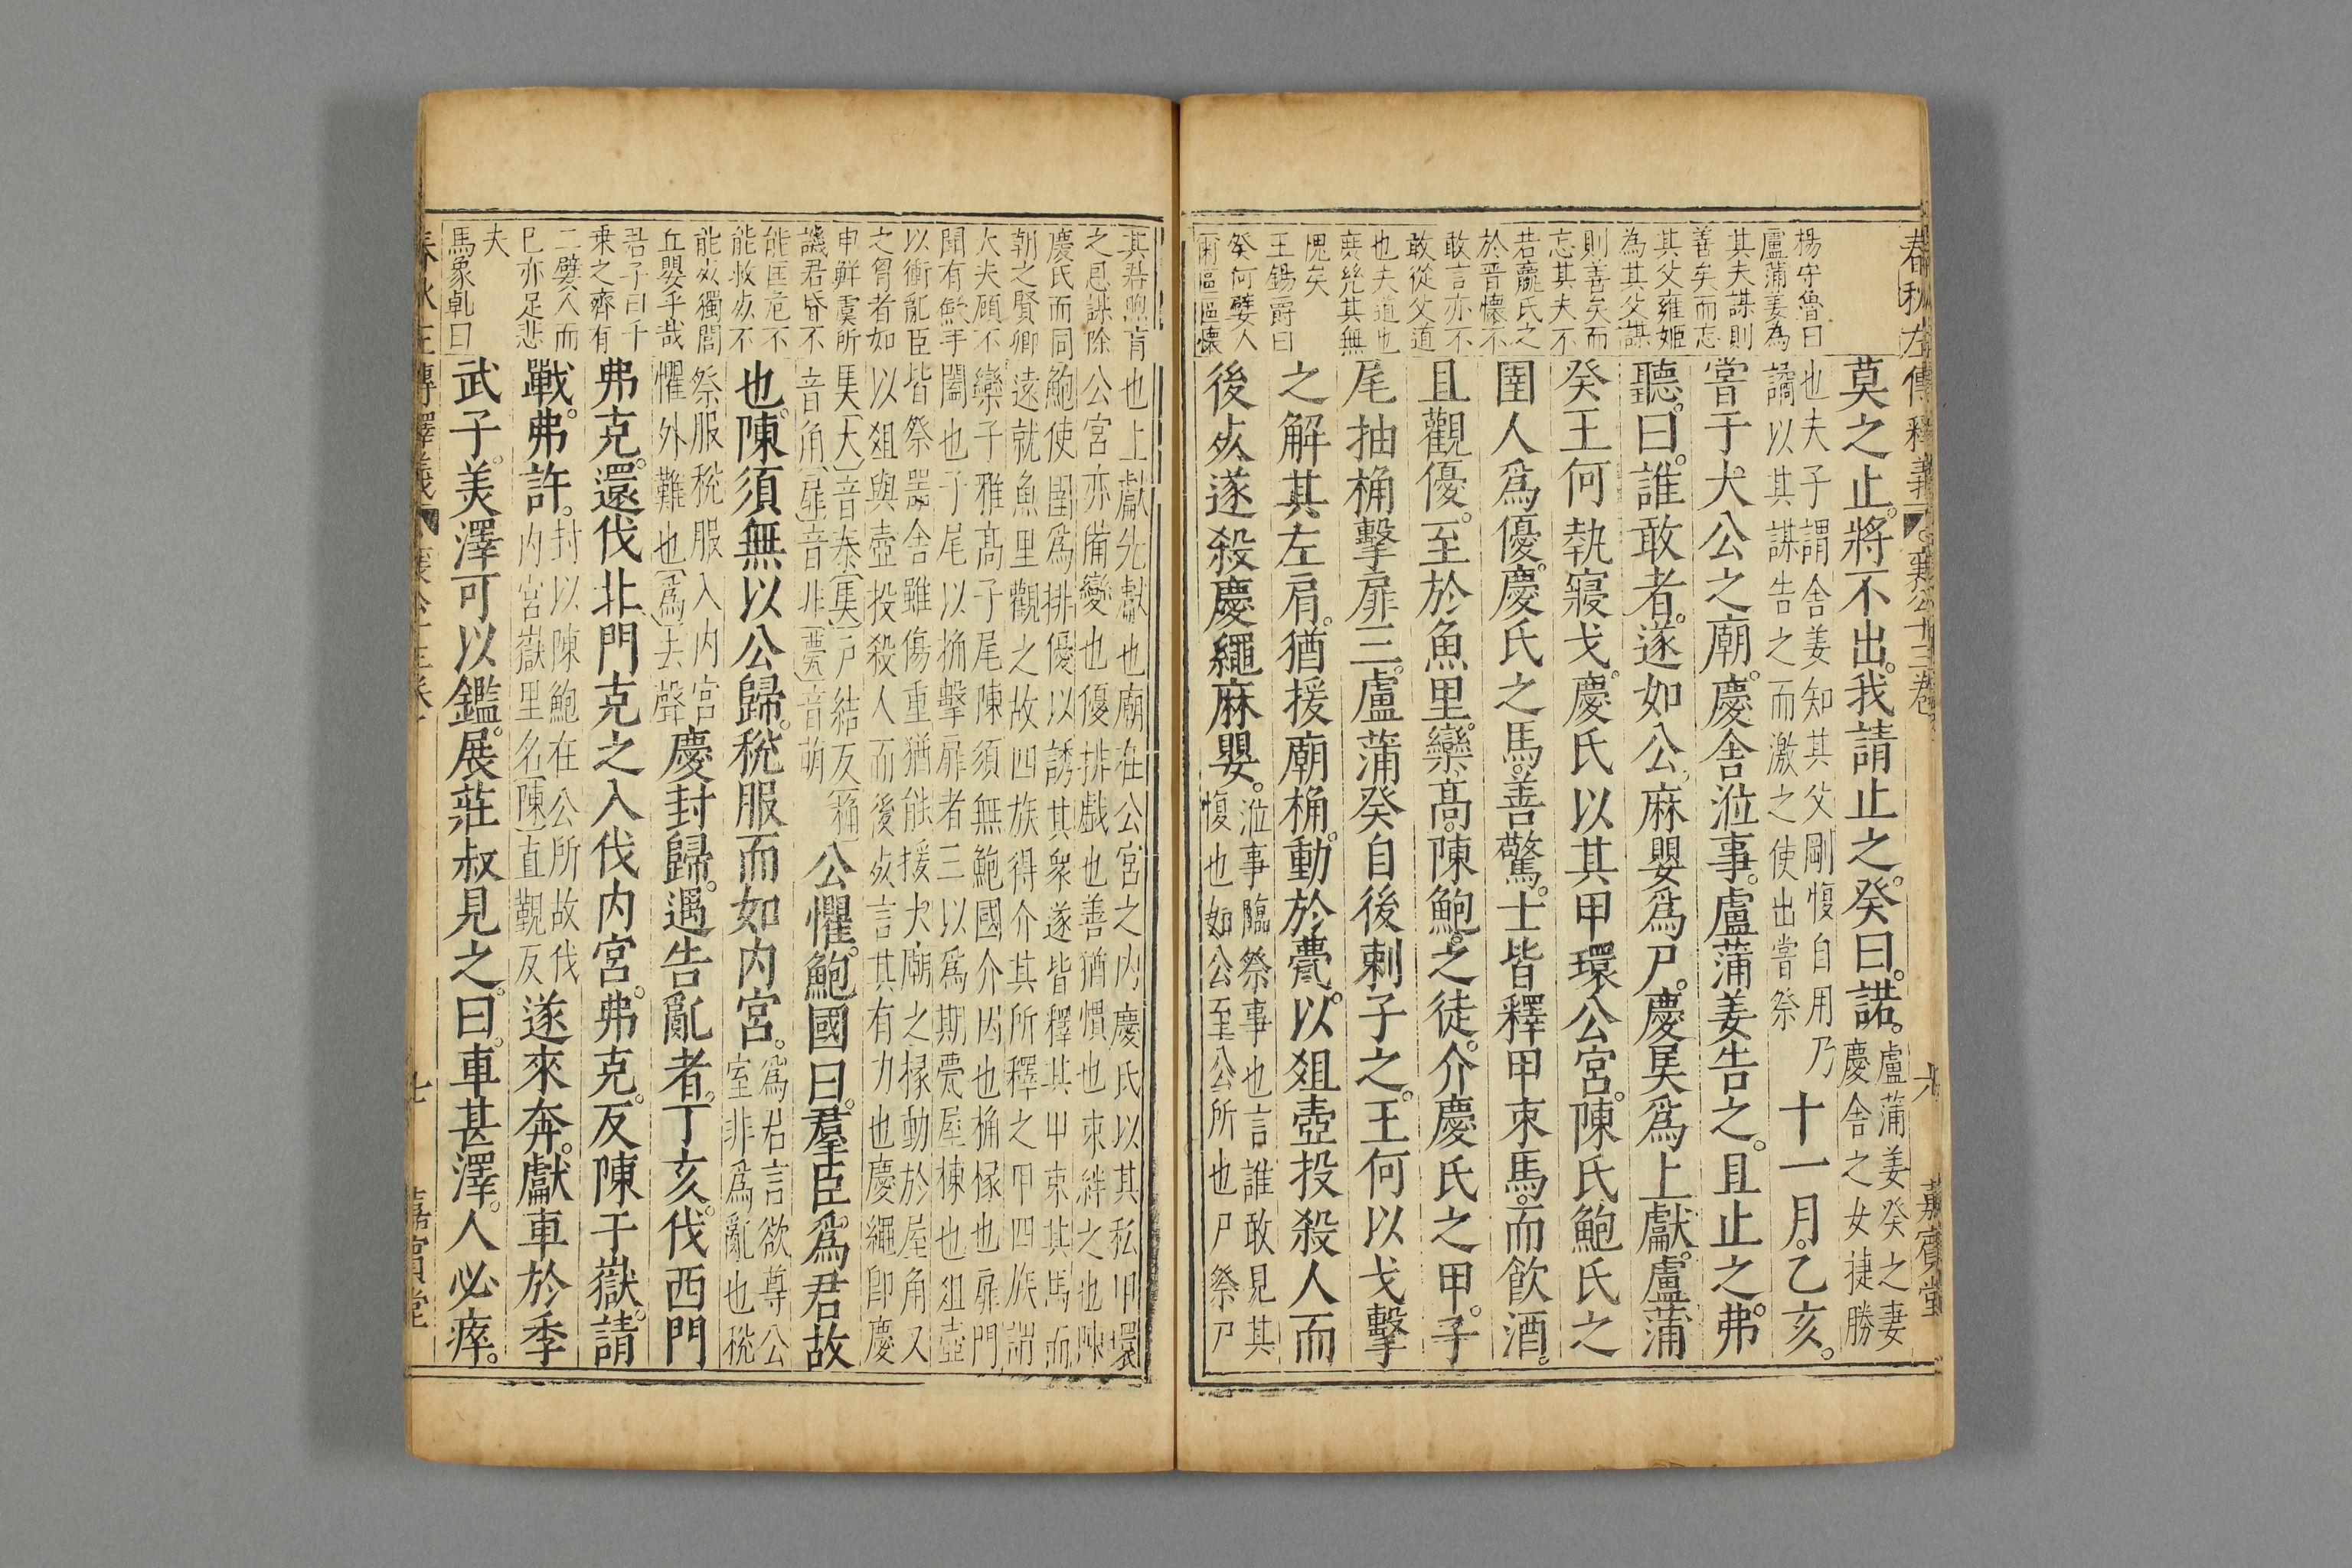 春秋左傳釋義 襄公十三卷 六 嘉賓堂
楊守魯曰
盧蒲姜為
其夫謀則
善矣而忘
其父雍姬
為其父謀
則善矣而
忘其夫不
若龐氏之
於晋懷不
敢言亦不
敢從父道
也夫道也
庶㡬其無
愧矣
王錫爵曰
癸何嬖人
爾區區懷
莫之止。將不出。我請止之。癸曰。諾。盧蒲姜癸之妻
慶舍之女捷勝
也夫子謂舍姜知其父剛愎自用乃
譎以其謀告之而激之使出嘗祭
十一月。乙亥。
嘗于大公之廟。慶舍涖事。盧蒲姜告之。且止之。弗
聽。曰。誰敢者。遂如公。麻嬰爲尸。慶㚖爲上獻。盧蒲
癸王何執寢戈。慶氏以其甲環公宮。陳氏鮑氏之
圉人爲優。慶氏之馬。善驚。士皆釋甲束馬。而飲酒。
且觀優。至於魚里。欒。高。陳。鮑。之徒。介慶氏之甲。子
尾抽桷擊扉三。盧蒲癸自後剌子之。王何以戈擊
之解其左肩。猶援廟桷。動於甍。以俎壺投殺人而
後死遂殺慶繩麻嬰。
涖事臨祭事也言誰敢見其
愎也如公至公所也尸祭尸
其君喣育
之恩誅除
慶氏而同
朝之賢卿
大夫顧不
聞有敏手
以衝亂臣
之胷者如
申鮮虞所
譏君昏不
能匡危不
能救死不
能死獨閭
丘嬰乎哉
君子曰千
乘之齊有
二嬖人而
已亦足悲
夫
馬象乹曰
也上獻先獻也廟在公宮之内慶氏以其私甲環
公宮亦備變也優排戲也善猶慣也束絆之也陳
鮑使圉爲排優以誘其衆遂皆釋其甲束其馬而
遠就魚里觀之故四族得介其所釋之甲四族謂
欒子雅高子尾陳須無鮑國介因也桷椽也扉門
闔也子尾以桷擊扉者三以爲期甍屋棟也俎壺
皆祭器舎雖傷重猶能援大廟之椽動於屋角又
以俎與壺投殺人而後死言其有力也慶繩即慶
㚖〔大〕音泰〔㚖〕戸結反〔桷〕
音角〔扉〕音非〔甍〕音萌
公懼。鮑國曰。羣臣。爲君故
也。陳須無以公歸。稅服而如内宮。
爲君言欲尊公
室非爲亂也稅
祭服稅服入内宮
懼外難也〔爲〕去聲
慶封歸。遇告亂者。丁亥。伐西門
弗克。還伐北門克之入伐内宮。弗克。反陳于嶽。請
戰。弗許。
封以陳鮑在公所故伐
内宮嶽里名〔陳〕直覲反
遂來奔。獻車於季
武子。美澤可以鑑。展莊叔見之。曰。車甚澤。人必瘁。
七 嘉賓堂